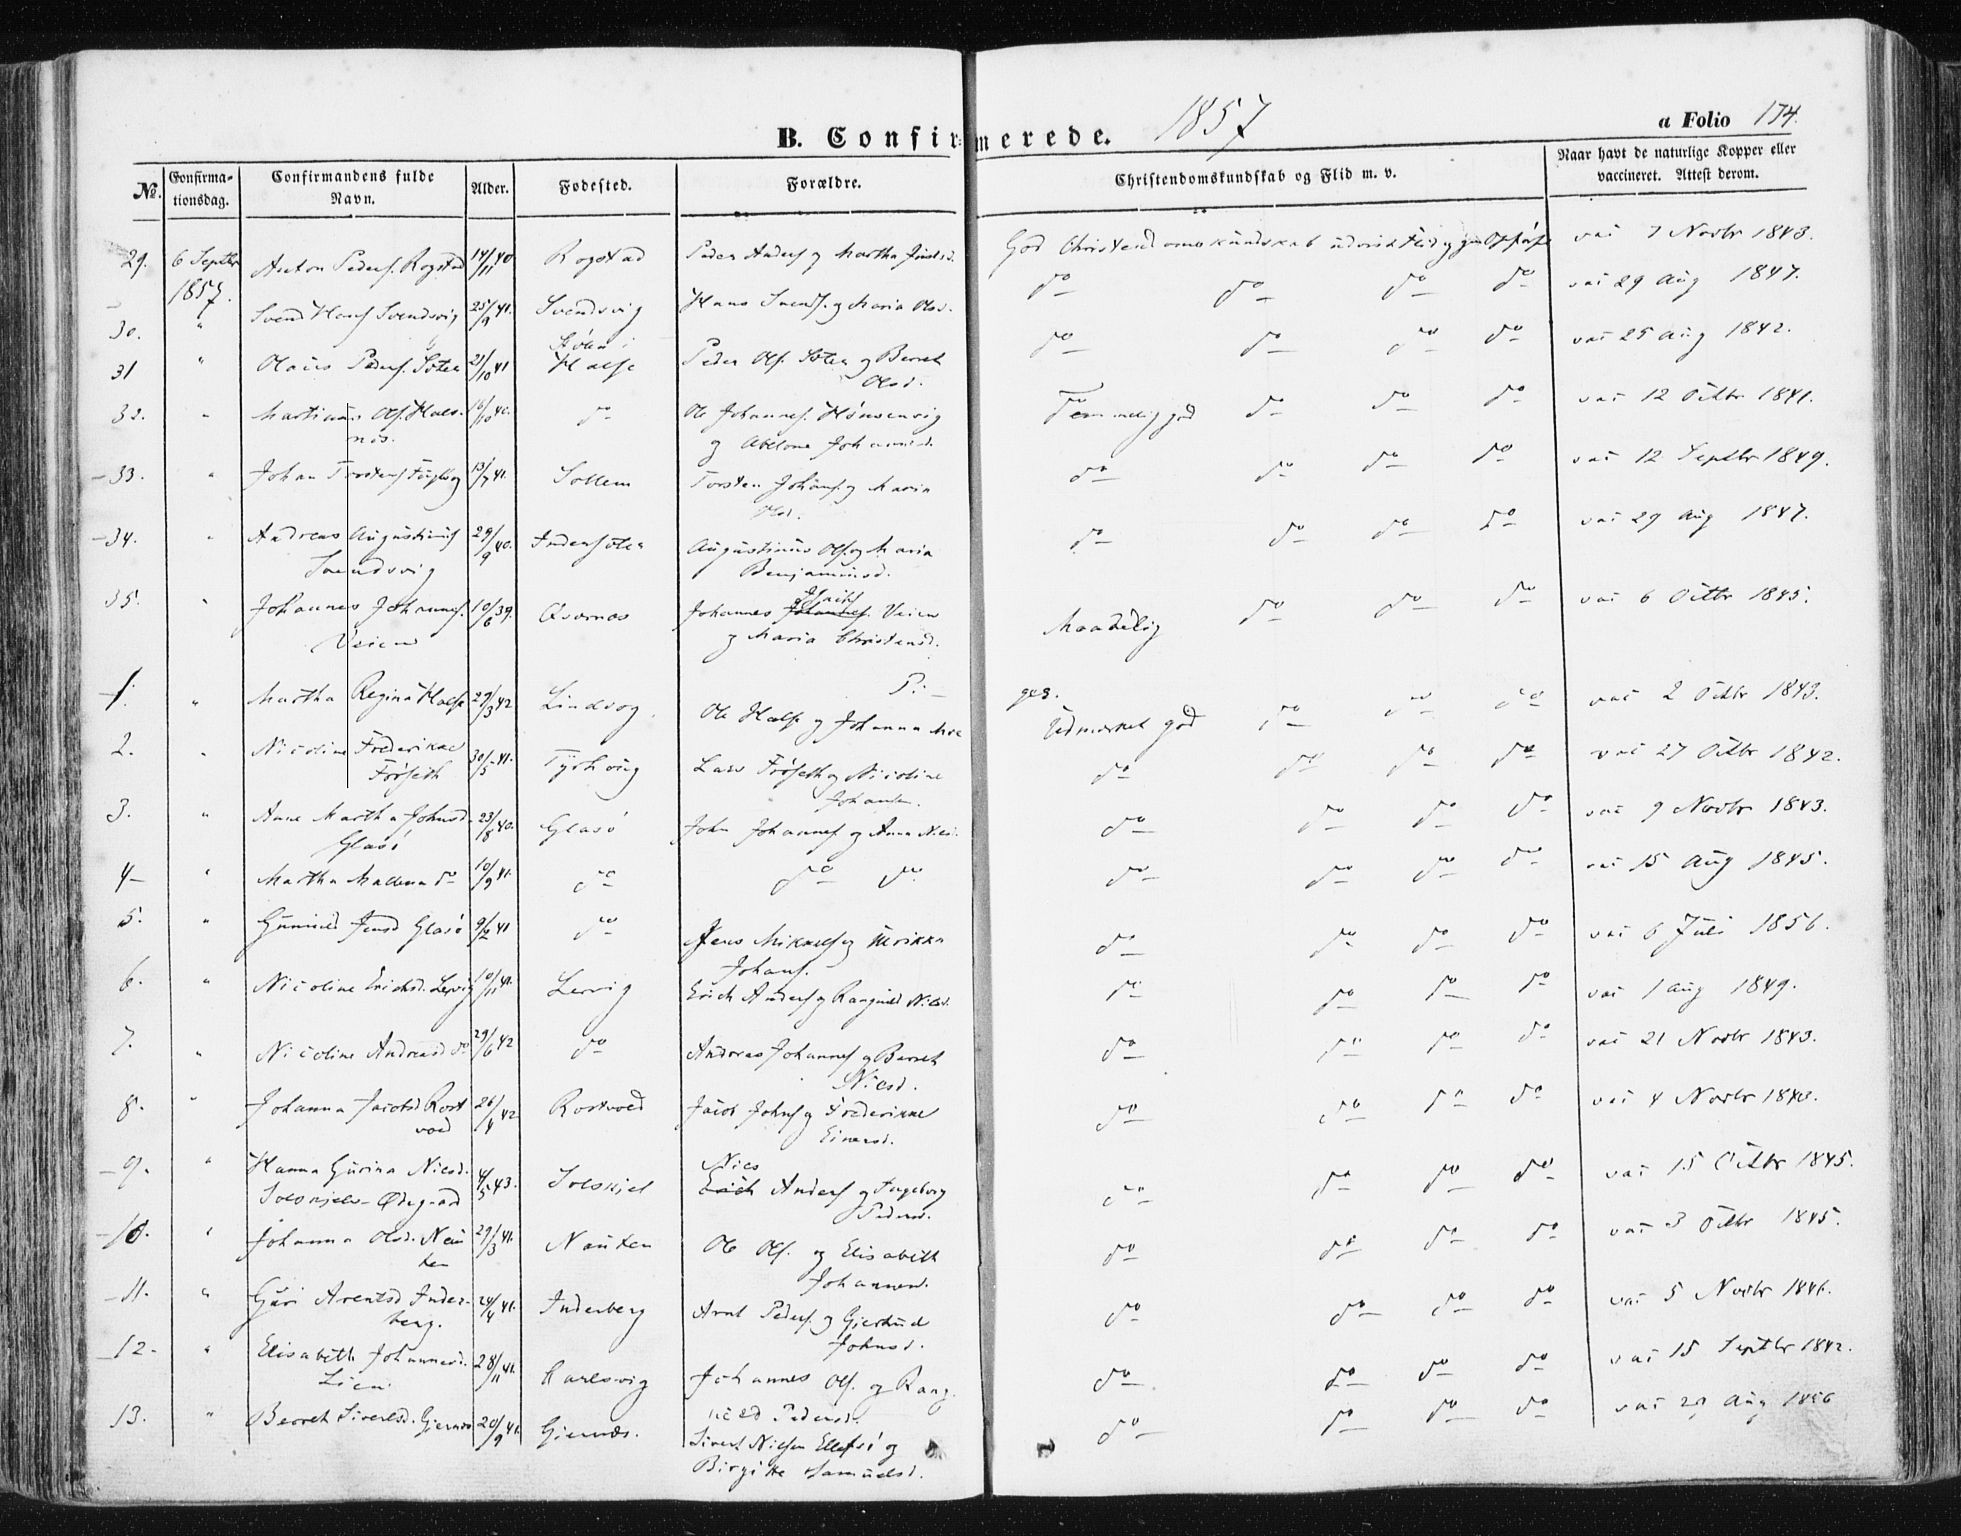 B. Confirmerede. 1857
a Folio 174.
No. Confirmationsdag. Confirmandens fulde Navn. Alder. Fødested. Forældre. Christendomskundskab og Flid m. v. Naar havt de naturlige Kopper eller vaccineret. Attest derom.
29. 6 Septbr 1857. Anton Peders. Rogstad 14/11 40 Rogstad Peder Anders og Martha God Christendomskundskab vac 7 Novbr 1843.
30. " Svend Hans Svendsvig 25/9 41. Svendsvig Hans Svends. og Maria Olsd. do do do do vac 29 Aug 1847.
31 " Olaus Peders. Solen 21/10 41 Halse Peder Ols. Solen og Berret Olsd. do do do do vac 25 Aug 1842.
32. " Martinus Ols. Halsnæs. 16/10 40. do Ole Johannes. og Abelone Johannesd. Temmelig god do do do vac 12 Octbr 1841.
33. " Johan Torstens 13/7 41. Sollem Torsten Johans. og Maria Olsd. do do do do vac 12 Septbr 1849.
34. " Andreas Augustinus Svendsvig 29/9 40. Augustinus Ols. og Maria Benjaminsd. do do do do vac 29 Aug 1847.
35. " Johannes Johannes. Veien 10/6 39. Qvernæs Johannes Johannes. Veien og Maria Christensd. Maadelig do do do vac 6 Octbr 1845.
P: ger.
1. " Martha Regina Halse 29/3 42 Lindvog Ole Halse og Johanna Moe Udmærket god do do do vac 2 Octbr 1843.
2. " Nicoline Frederikke Frøseth 30/5 41. Lars Frøseth og Nicoline do do do do vac 27 Octbr 1842.
3. " Ane Martha Johnsd. Glasø 23/8 40. Glasø John Johannes og Anna Nilsd. do do do do vac 9 Novbr 1843.
4 " Martha Malena do 10/9 41. do do do do do do do vac 15 Aug 1845.
5. " Gunnild Jensd Glasø 9/2 41 do Jens Mikaels og Ulrikka Johans. do do do do vac 6 Juli 1856.
6. " Nicoline Erichsd. Lervig 10/11 41. Lervig Erich Anders og Rangnild Nilsd. do do do do vac 1 Aug 1849.
7. " Nicoline Andreasd do 29/6 42 do Andreas Johannes og Berret Nilsd. do do do do vac 21 Novbr 1843.
8. " Johanna Jacobsd Rostvold 26/4 42 Rostvold Jacob Johns og Frederikke Einersd. do do do do vac 4 Novbr 1843.
9. " Hanna Gurina Nilsd. Solskjels Ødegaard 4/5 43. Solskjel Nils Erich Anders og Ingeborg Pedersd. do do do do vac 15 Octbr 1845.
10. " Johanna Olsd. Nauten 29/3 41. Nauten Ole Ols. og Elisabeth Johannesd. do do do do vac 3 Octbr 1845.
11. " Guri Arentsd Inderberg. 24/4 41. Inderberg Arnt Peders. og Giertrud Johnsd. do do do do vac 5 Novbr 1846.
12. " Elisabeth Johannesd. Lien 28/11 41. Karlsvig Johannes Ols. og Rangnild Pedersd. do do do do vac 15 Septbr 1842.
13. " Berret Sivertsd. Giernæs 20/9 41. Giernæs. Sivert Nilsen og Birgitte Samuelsd. do do do do vac Aug 1856